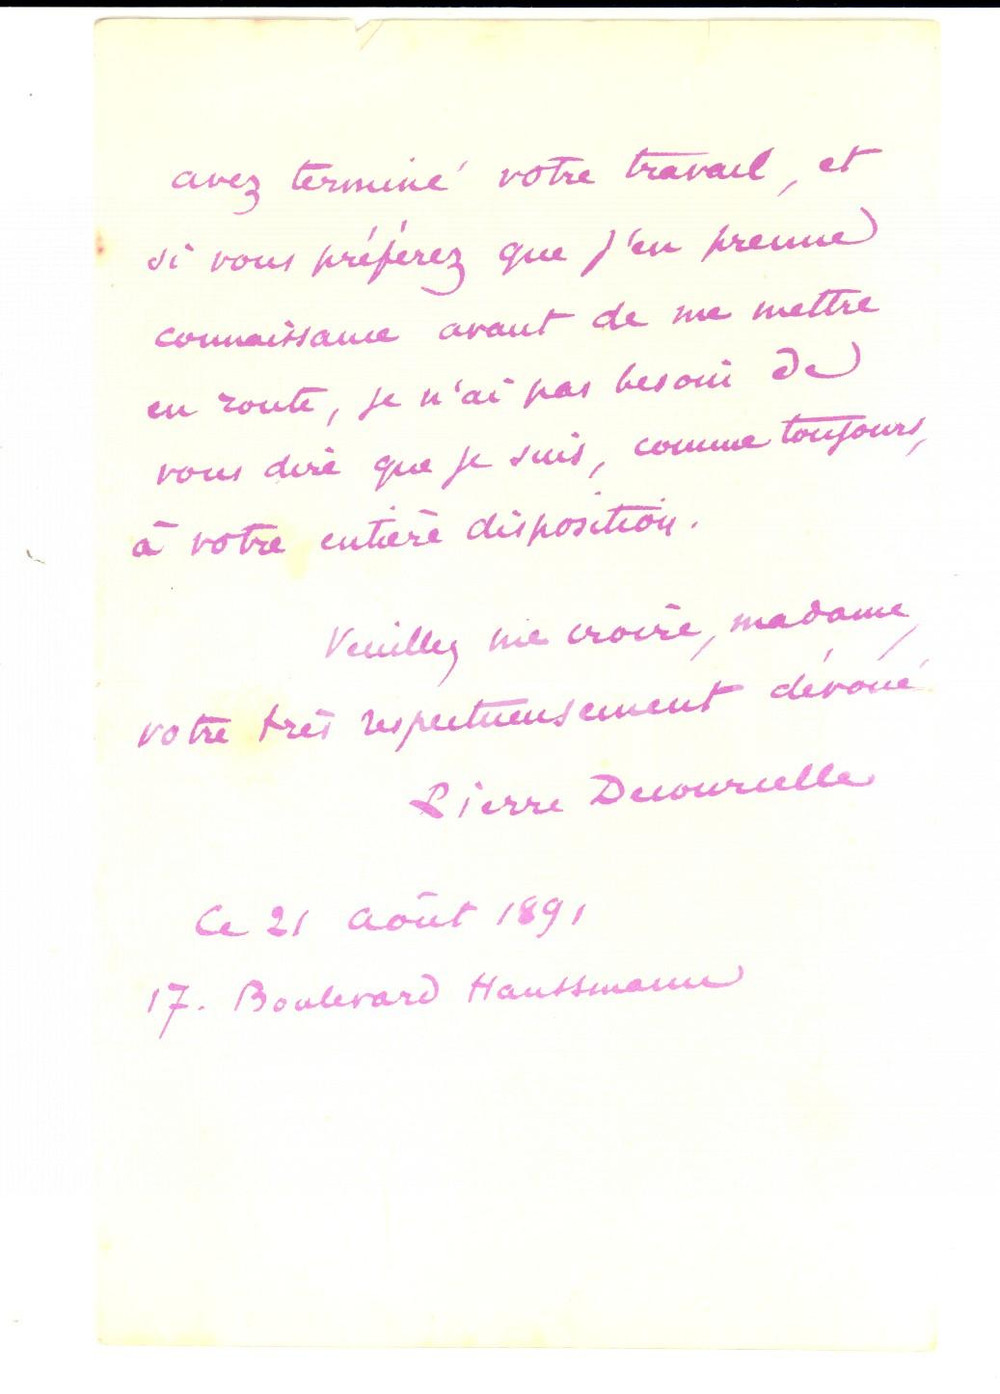 avez terminé votre travail, et
si vous préférez que j'en prenne
connaissance avant de me mettre
en route, je n'ai pas besoin de
vous dire que je suis, comme toujours,
à votre entière disposition.
Veuillez me croire, madame,
votre très respectueusement dévoué
Pierre Decourcelle
Ce 21 août 1891
17. Boulevard Haussmann